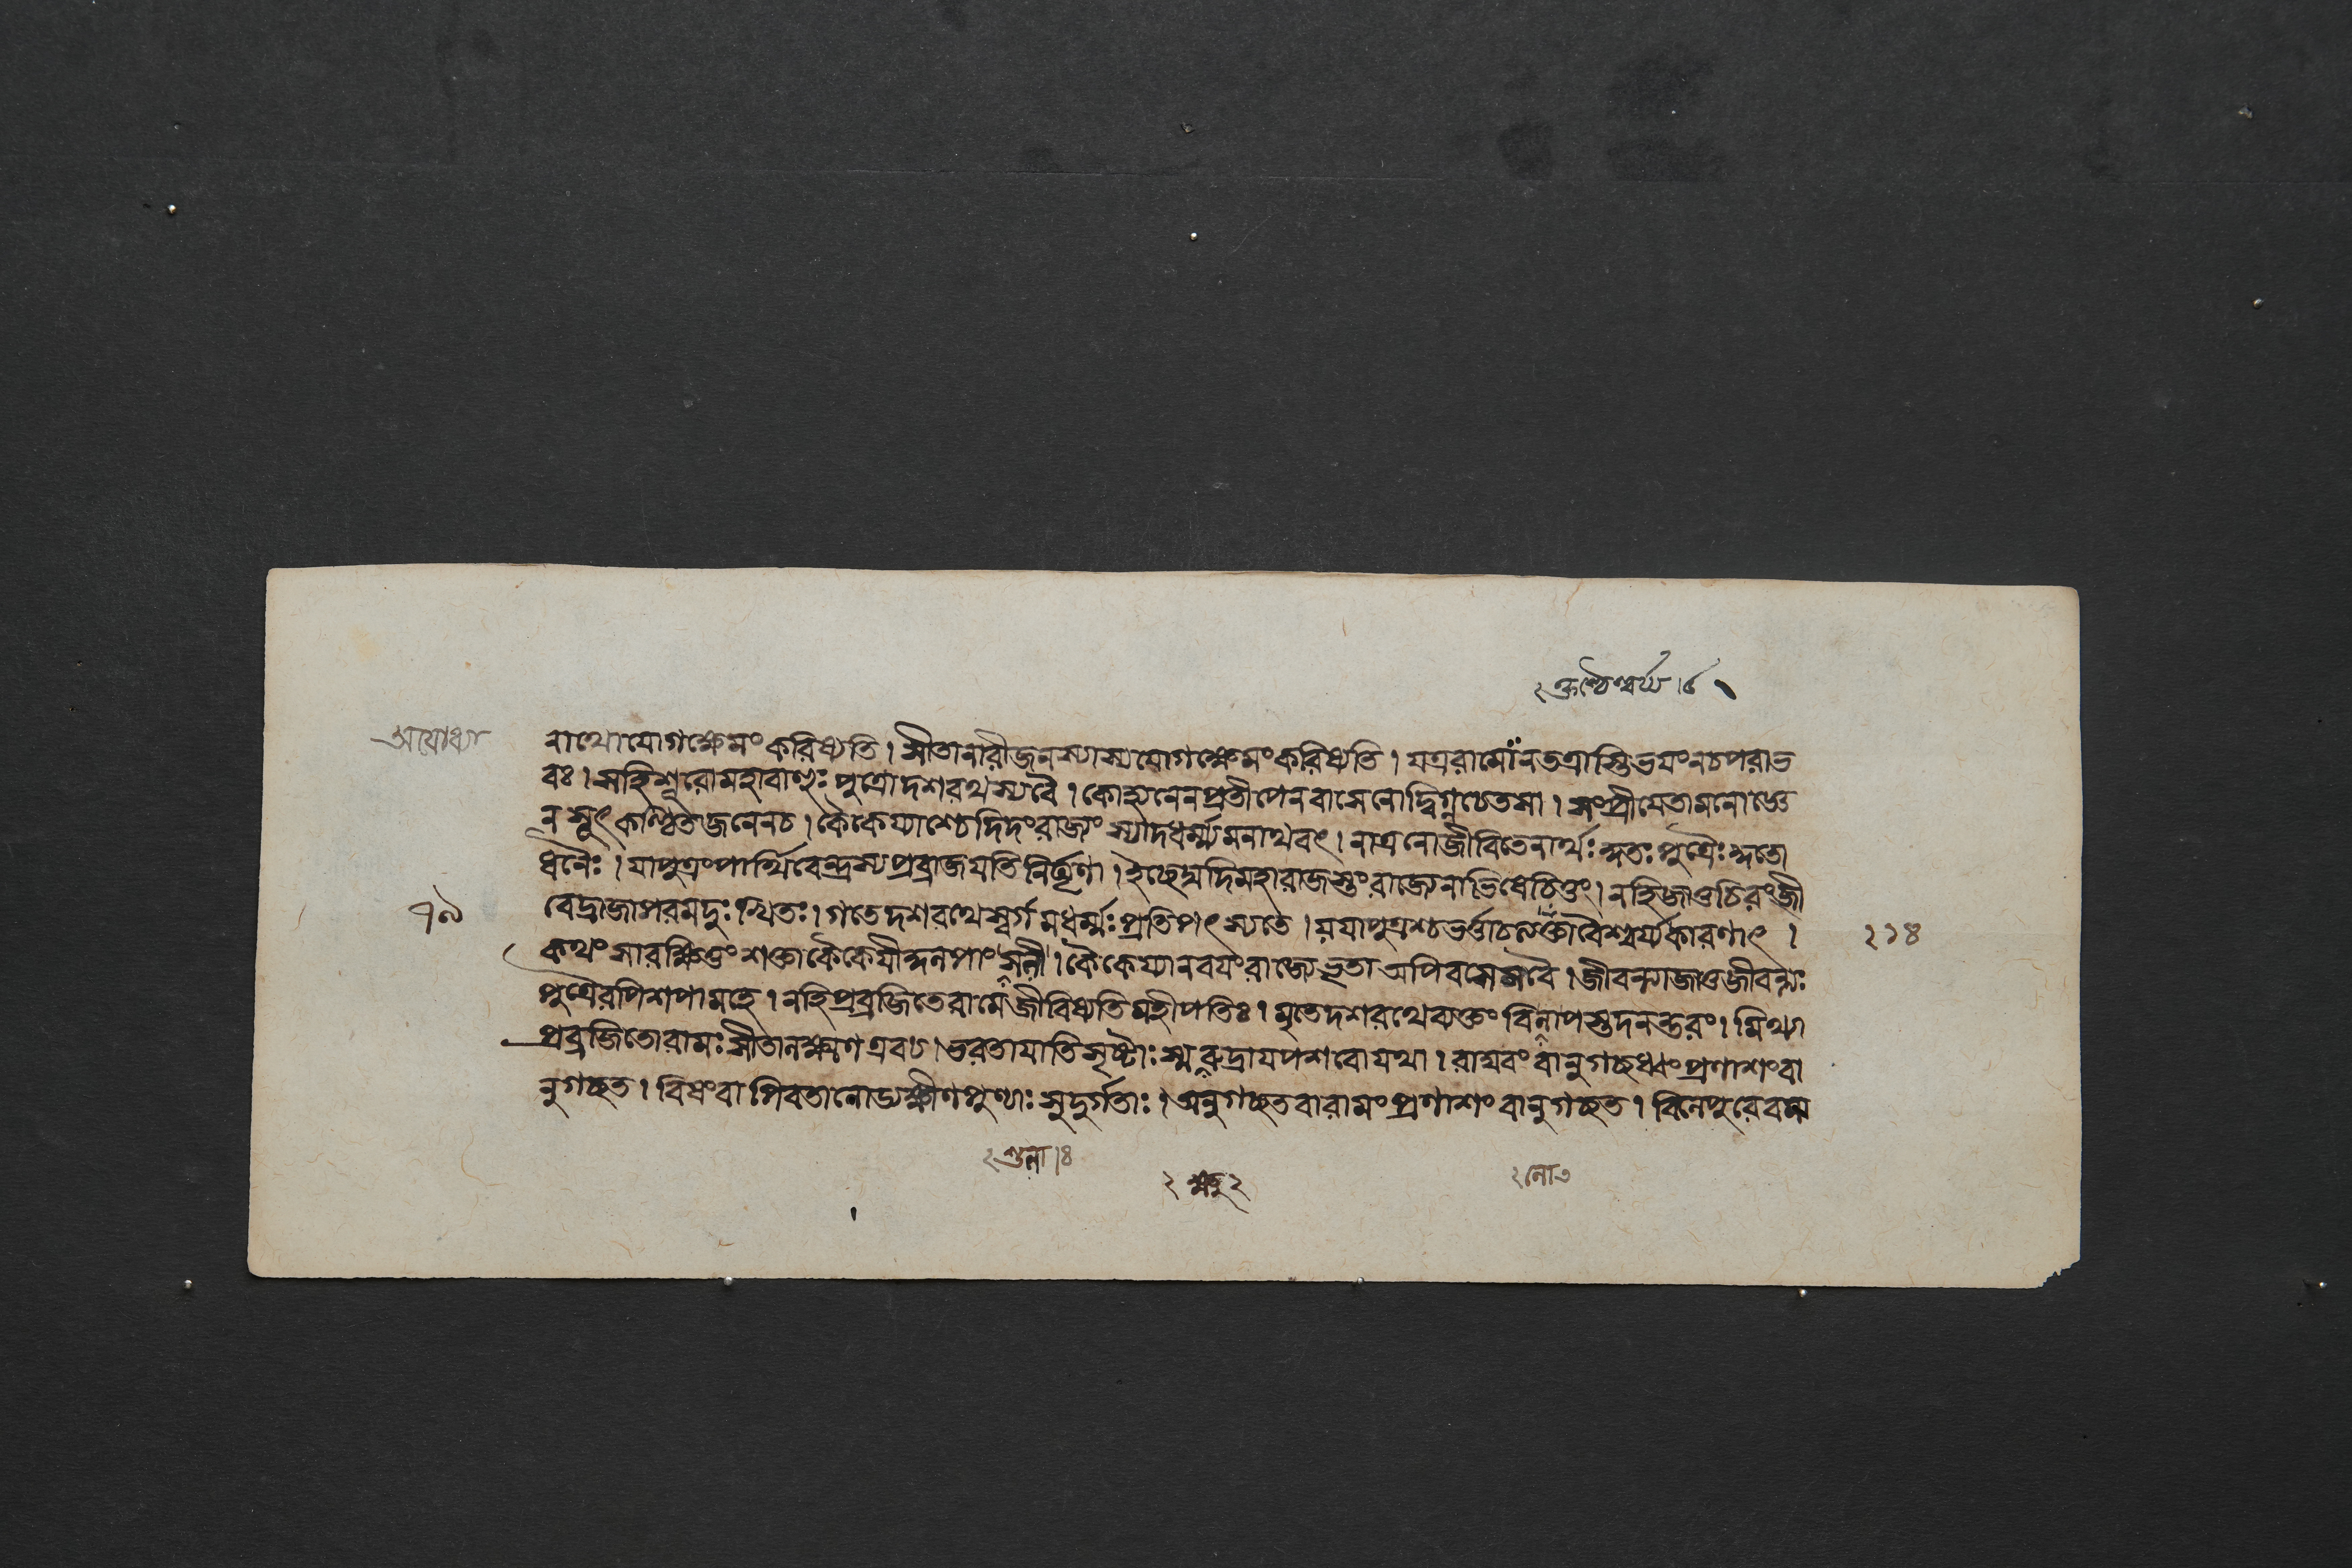 ২ ক্তাশ্চৈশ্বর্য্য । ৫
অযোধ্যা
নাথোযোগক্ষেমংকরিষ্যতি । সীতানারীজনস্যাস্যযোগক্ষেমংকরিষ্যতি । যত্ররামোনতত্রাস্তিভয়ংনচপরাভ
বঃ । সহিশূরোমহাবাহুঃপুত্রোদশরথস্যবৈ । কোন্বনেনপ্রতীপেনবাসেনোদ্বিগ্নচেতসা । সংপ্রীয়েতামনোজ্ঞে
নসূৎকণ্ঠিতজনেনচ । কৈকেয্যাশ্চেদিদংরাজ্যংস্যাদধর্ম্ম্যমনাথবৎ । নাত্রনোজীবিতেনার্থঃকুতঃপুত্রৈঃকুতো
ধনৈঃ । যাপুত্রংপার্থিবেন্দ্রস্যপ্রব্রাজয়তিনির্ঘৃণা । ইচ্ছেদ্যদিমহারাজস্তংরাজ্যেনাভিষেচিতুং । নহিজাতুচিরংজী
৭৯
বেদ্রাজাপরমদুঃখিতঃ । গতেদশরথেস্বর্গমধর্ম্মঃপ্রতিপৎস্যতে । যয়াপুত্রশ্চভর্ত্তাচত্যক্তাবৈশ্বর্য্যকারণাৎ ।
২১৪
কথংসারক্ষিতুংশক্তাকৈকেয়ীকুলপাংসনী । কৈকেয্যানবয়ংরাজ্যেভৃতাঅপিবসেমবৈ । জীবন্ত্যাজাতুজীবন্ত্যঃ
পুত্রৈরপিশপামহে । নহিপ্রব্রজিতেরামেজীবিষ্যতিমহীপতিঃ । মৃতেদশরথেব্যক্তংবিলাপস্তদনন্তরং । মিথ্যা
প্রব্রজিতোরামঃসীতালক্ষ্মণএবচ । ভরতায়াতিসৃষ্টাঃস্মরুদ্রায়পশবোযথা । রাঘবংবানুগচ্ছধ্বংপ্রণাশংবা
নুগচ্ছত । বিষংবাপিবতালোড্যক্ষীণপুণ্যাঃসুদুর্গতাঃ । অনুগচ্ছতবারামংপ্রণাশংবানুগচ্ছত ।
২ শুনা । ৪
২ লা ৩